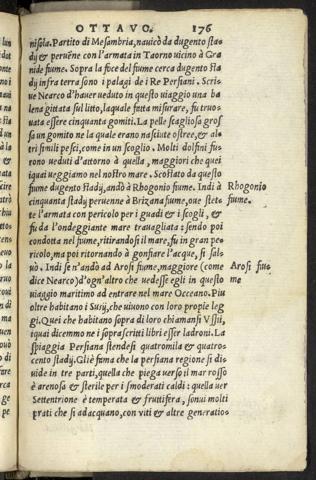 OTTAVO. 176
nisola. Partito di Mesambria, nauicò da dugento sta
dÿ et peruēne con l'armata in Taorno uicino à Gra
nide fiume. Sopra la foce del fiume cerca dugento sta
dÿ infra terra sono i palagi de i Re Persiani. Scri=
ue Nearco d'hauer ueduto in questo uiaggio una ba
lena gittata sul litto, laquale fatta misurare, fu troua
uata essere cinquanta gomiti. La pelle scagliosa gros
sa un gomito ne la quale erano nasciute ostree, et al=
tri simili pesci, come in un scoglio. Molti dolfini fu=
rono ueduti d'attorno à quella, maggiori che quei
iquai ueggiamo nel nostro mare. Scostato da questo
fiume dugento stadÿ, andò à Rhogonio fiume. Indi à
Rhogonio
cinquanta stadÿ peruenne à Brizana fiume, oue stet=
fiume.
te l'armata con pericolo per i guadi et i scogli, et
fu da l'ondeggiante mare trauagliata: sendo poi
condotta nel fiume, ritirandosi il mare, fu in gran pe=
ricolo, ma poi ritornando à gonfiare l'acque, si sal=
uò. Indi se n'andò ad Arosi fiume, maggiore (come
Arosi fiu=
dice Nearco) d'ogn'altro che uedesse egli in questo
me
uiaggio maritimo ad entrare nel mare Occeano. Piu
oltre habitano i Susÿ, che uiuono con loro proprie leg
gi. Quei che habitano sopra di loro chiamansi Vssii,
iquai dicemmo ne i soprascritti libri esser ladroni. La
spiaggia Persiana stendesi quatromila et quatro=
cento stadÿ. Gliè fama che la persiana regione si di=
uide in tre parti, quella che piega uerso il mar rosso
è arenosa et sterile per i smoderati caldi: quella uer
Settentrione è temperata et fruttifera, sonui molti
prati che si adacquano, con viti et altre generatio=